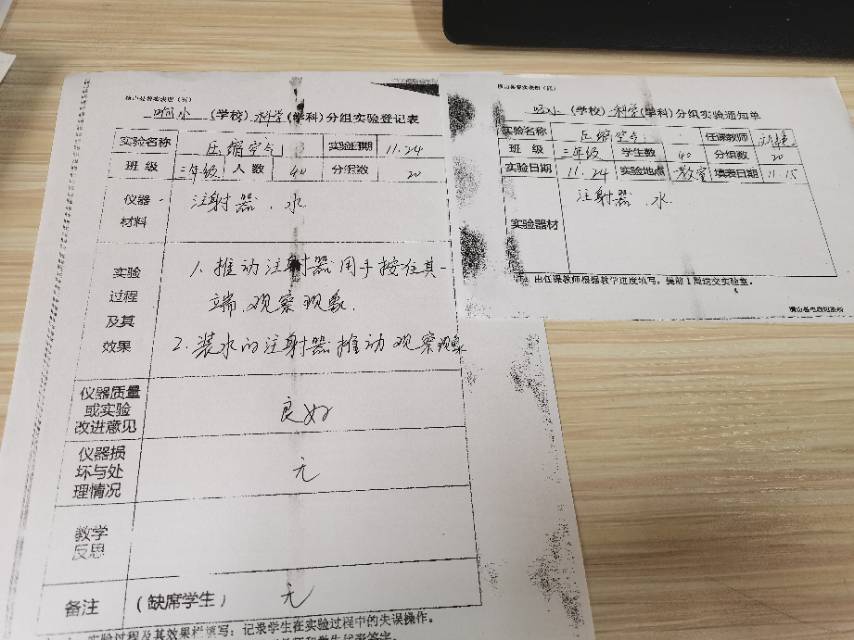 小 (学校) 科学 (学科) 分组实验登记表
实验名称 压缩空气 实验日期 11.24
班 级 三年级 人 数 40 分组数 20
仪器
材料
注射器、水
实验
过程
及其
效果
1、推动注射器用手按住其一
端,观察现象.
2、装水的注射器推动观察现象
仪器质量
或实验
改进意见
良好
仪器损
坏与处
理情况
无
教学
反思
备注 (缺席学生) 无
实验过程及其效果栏填写:记录学生在实验过程中的失误操作。
小 (学校) 科学 (学科) 分组实验通知单
实验名称 压缩空气 任课教师
班 级 三年级 学生数 40 分组数 20
实验日期 11.24 实验地点 教室 填表日期 11.15
实验器材
注射器、水
注:由任课教师根据教学进度填写,提前1周送交实验室。